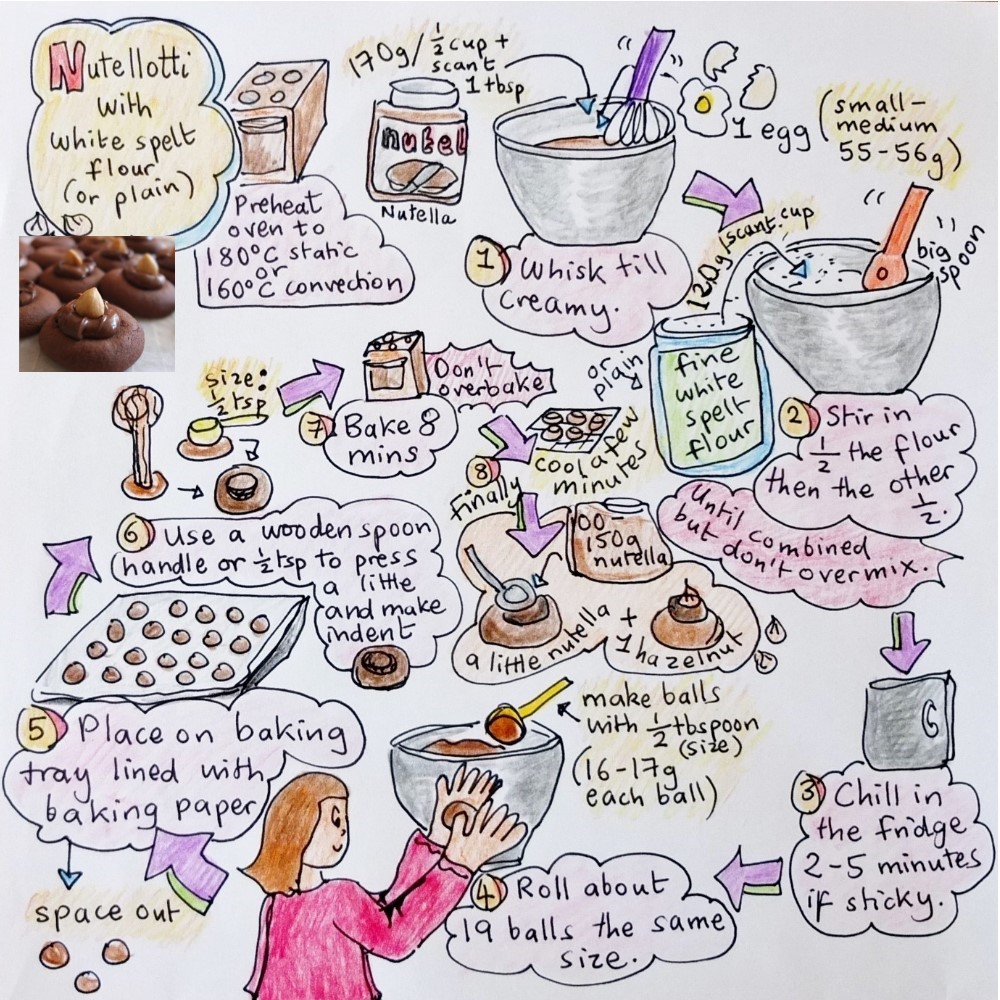 Nutellotti
with
white spelt
flour
(or plain)
Preheat
oven to
180°C static
or
160°C convection
170g/ 1/2 cup +
scant
1 tbsp
nutel
Nutella
1 egg
(small-
medium
55-56g)
1 Whisk till
creamy.
120g/scant cup
big
spoon
or
plain
fine
white
spelt
flour
2 Stir in
1/2 the flour
then the other
1/2.
Until combined
but don't overmix.
3 Chill in
the fridge
2-5 minutes
if sticky.
make balls
with 1/2 tbspoon
(size)
(16-17g
each ball)
4 Roll about
19 balls the same
size.
5 Place on baking
tray lined with
baking paper
space out
6 Use a wooden spoon
handle or 1/2 tsp to press
a little
and make
indent
size:
1/2 tsp
7 Bake 8
mins
Don't
overbake
8
cool a few
minutes
Finally
100
150g
nutella
a little nutella +
1 hazelnut